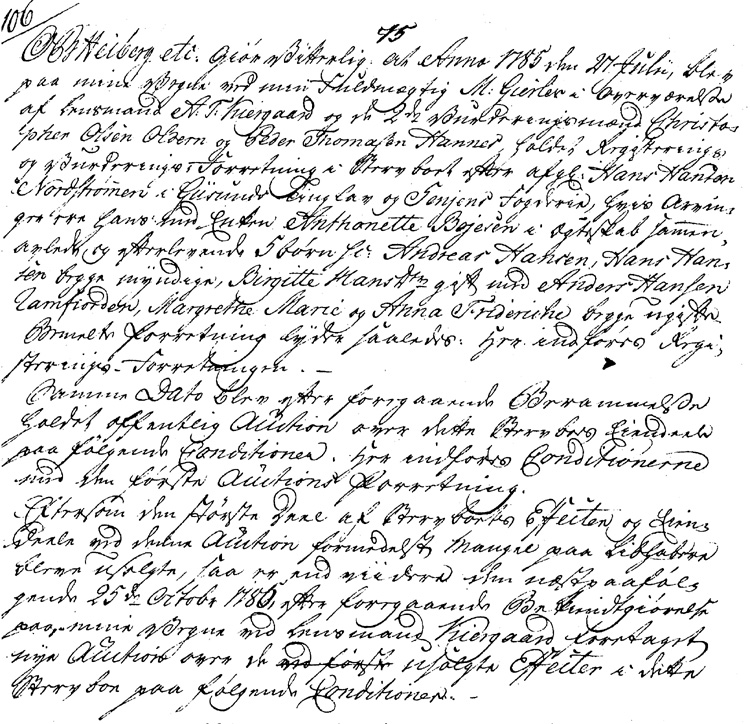 106
75
OB Heiberg etc. Giør Vitterlig: at Anno 1785 den 27 Julii, blev
paa mine Vegne ved min Fuldmægtig M. Gierløv i Overværelse
af Lensmand A. T. Kiergaard og de 2de Vurderingsmænd Christo-
pher Olsen Olvern og Peder Thomasen Hannes holdet Registerings
og Vurderings-Forretning i Stervboet efter afg: Hans Hansen
Nordstrømen i Giisunds Tinglav og Senjens Fogderie, hvis Arvin-
ger ere hans med Enken Anthonette Bojesen i ægteskab sammen-
avlede og efterlevende 5 børn sc: Andreas Hansen, Hans Han-
sen begge myndige, Birgitte Hansdtr gift med Anders Hansen
Tamfiorden, Margrethe Marie og Anna Frideriche begge ugifte
Bemelte Forretning lyder saaledes: Her indføres Regi-
sterings-Forretningen. —
Samme Dato blev efter foregaaende Berammelse
holdet offentlig Auction over dette Stervboes Eiendeele
paa følgende Conditioner. Her indføres Conditionerne
med den første Auctions Forretning.
Eftersom den største Deel af Stervboets Effecter og Eien-
deele ved denne Auction formedelst Mangel paa Liebhabere
bleve usolgte, saa er end viidere den næstpaaføl-
gende 25de Octobr 1786, efter foregaaende Bekiendtgiørelse
paa mine Vegne ved Lensmand Kiergaard foretaget
nye Auction over de ved først usolgte Effecter i dette
Stervboe paa følgende Conditioner. —